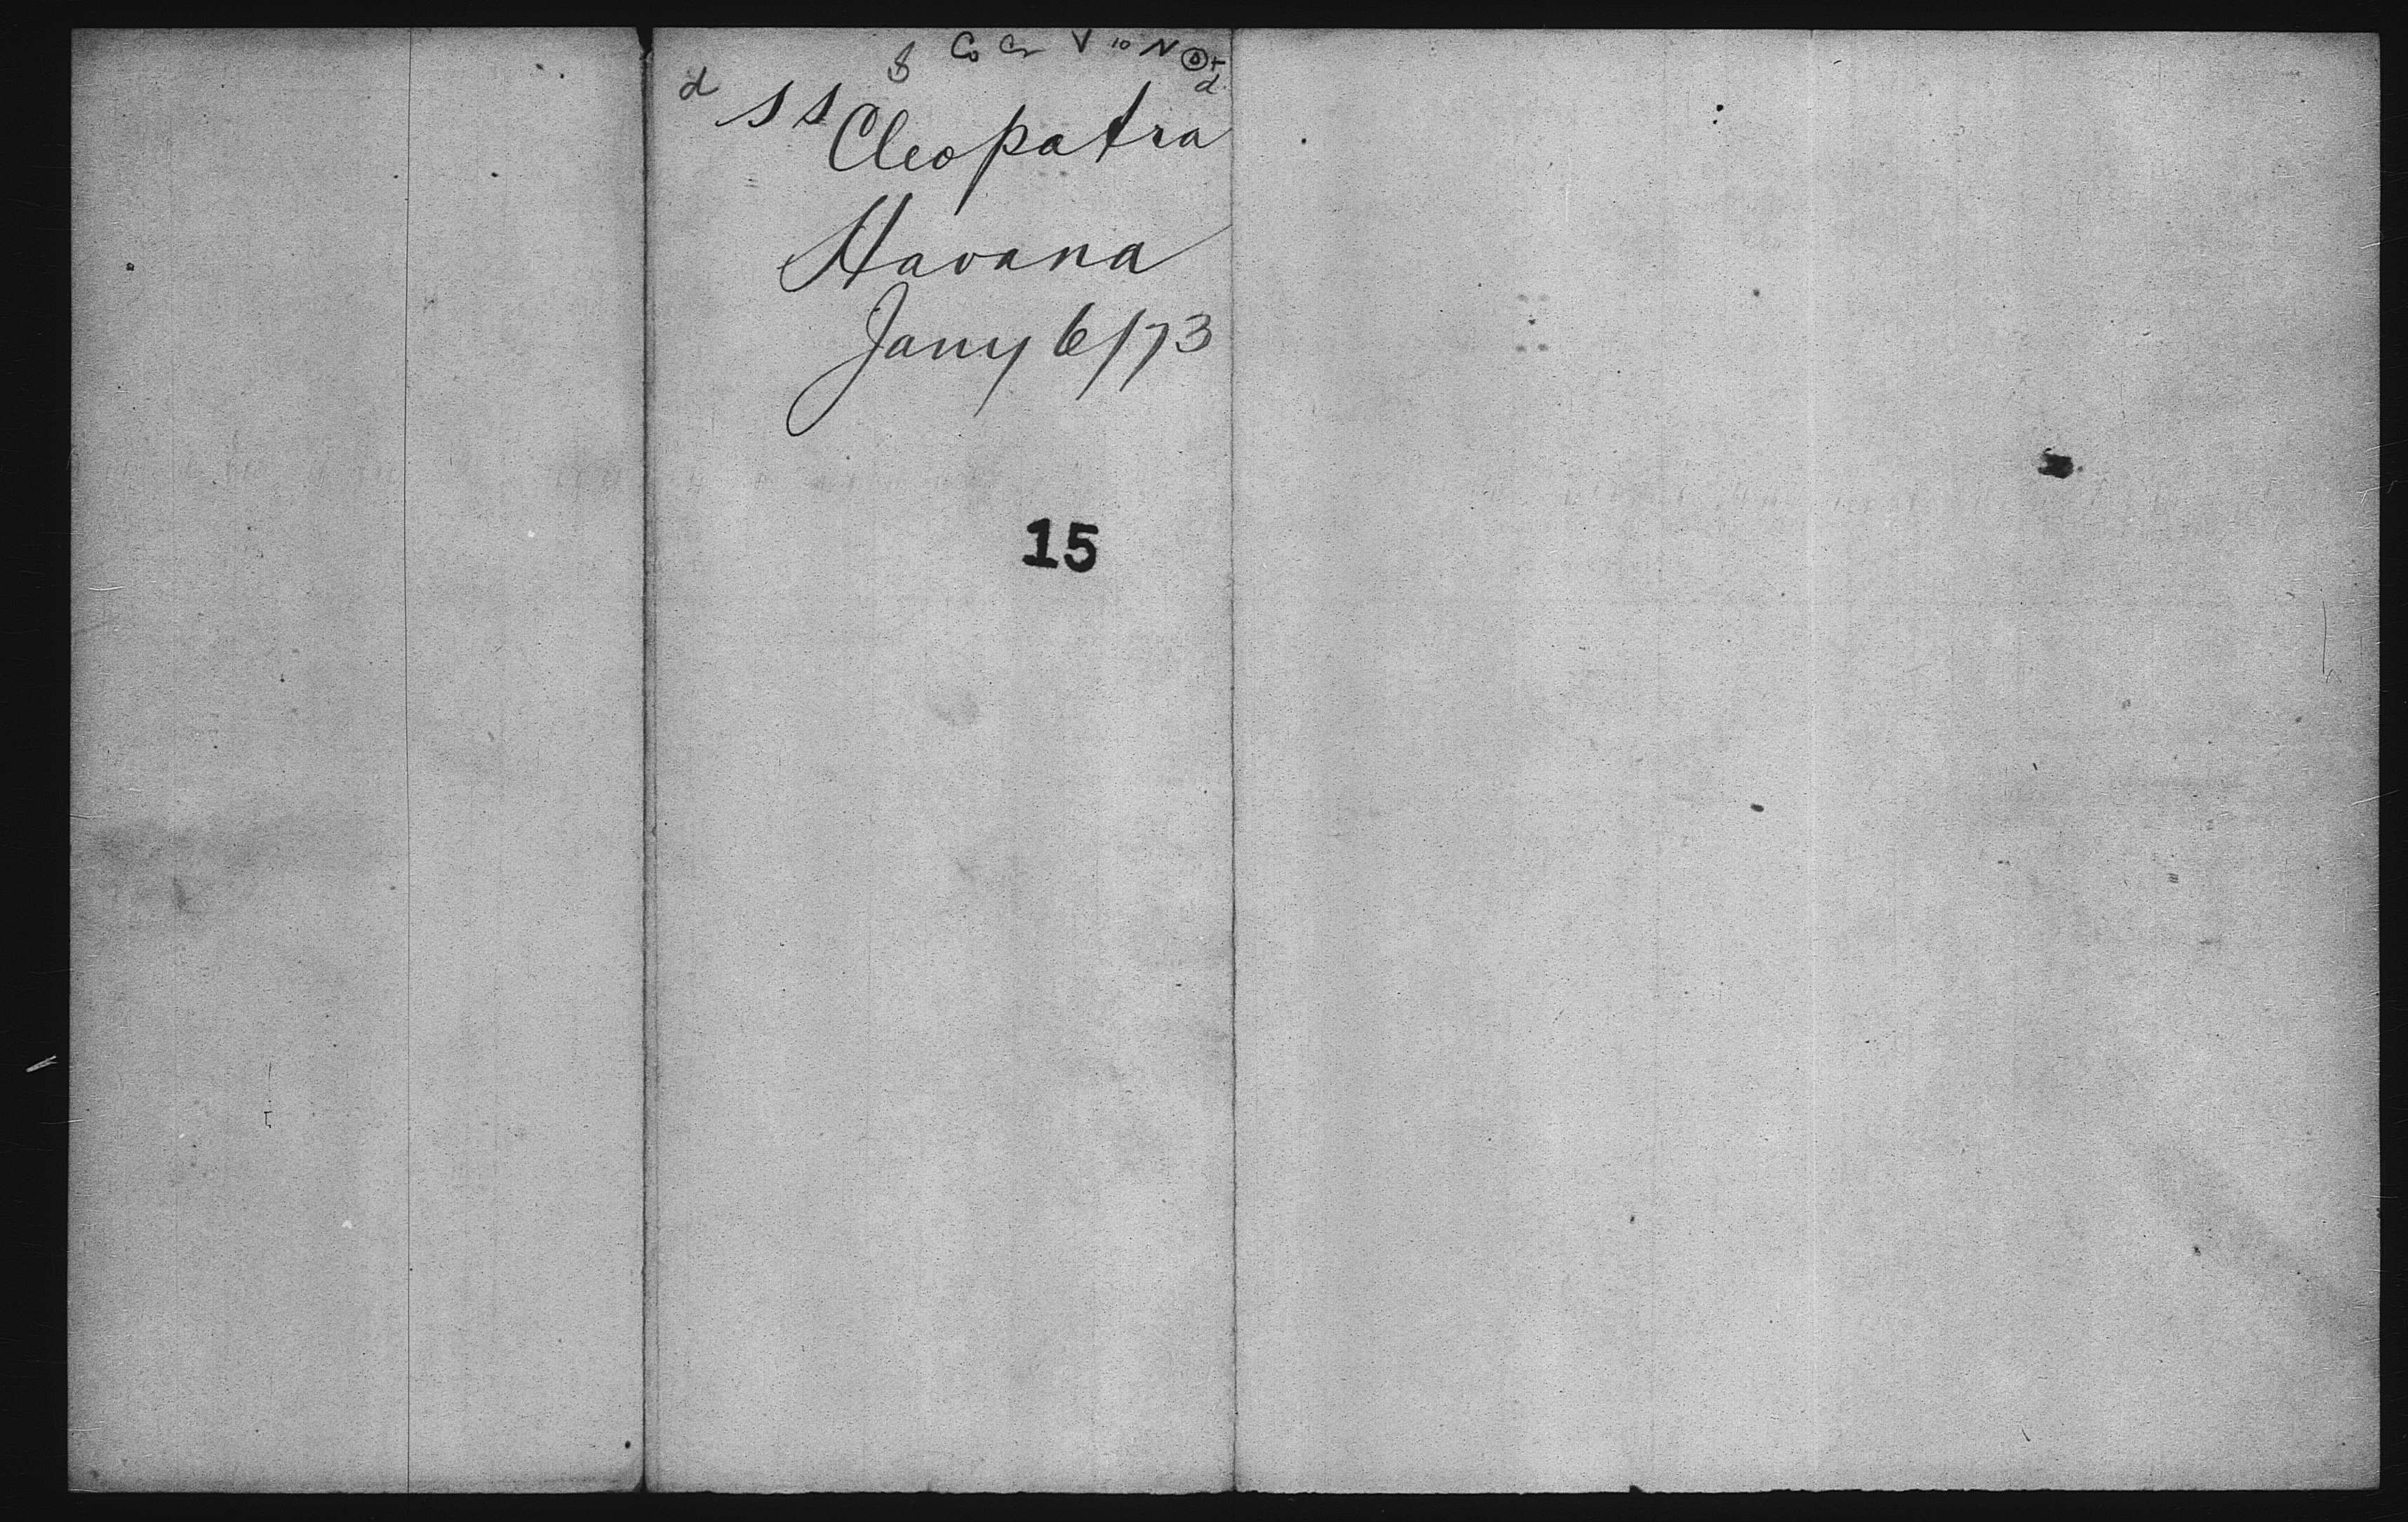 8 Co Cr V 10 N
d d
SS Cleopatra
Havana
Jany 6/73
15